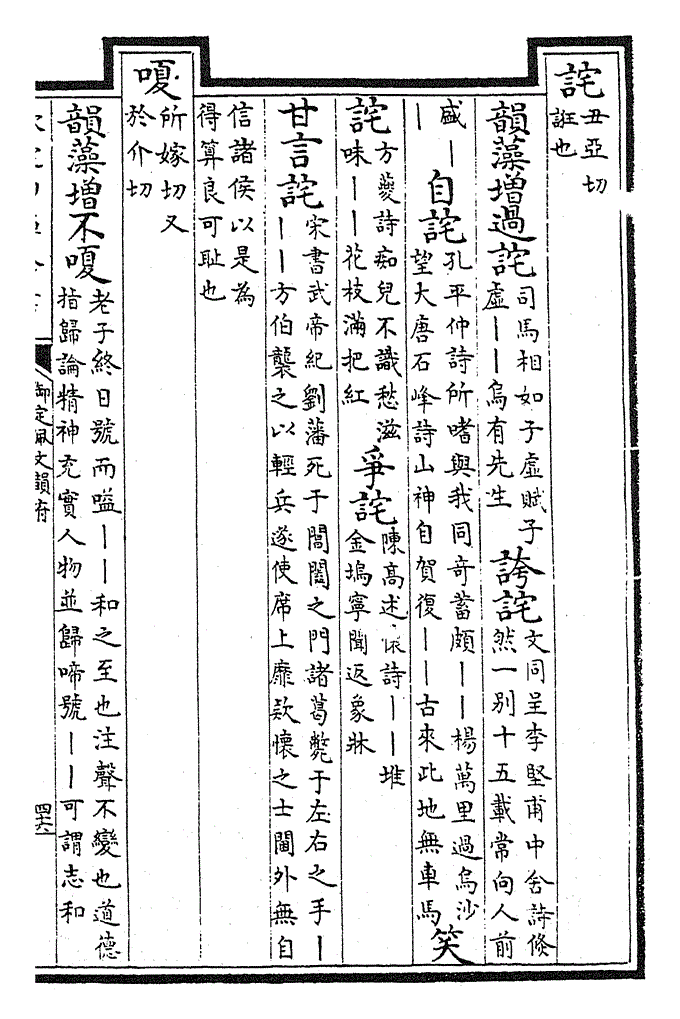 詫丑亞切
誑也
韻藻增過詫司馬相如子虛賦子
虛丨丨烏有先生
誇詫文同呈李堅甫中舍詩倐
然一別十五載常向人前
盛丨
丨
自詫孔平仲詩所嗜與我同奇蓄頗丨丨楊萬里過烏沙
望大唐石峰詩山神自賀復丨丨古來此地無車馬
笑
詫方夔詩痴兒不識愁滋
味丨丨花枝滿把紅
爭詫陳高述懷詩丨丨堆
金塢寧聞返象牀
甘言詫宋書武帝紀劉藩死于閶闔之門諸葛斃于左右之手丨
丨丨方伯襲之以輕兵遂使席上靡款懷之士閫外無自
信諸侯以是為
得算良可恥也
嗄所嫁切又
於介切
韻藻增不嗄老子終日號而嗌丨丨和之至也注聲不變也道德
指歸論精神充實人物並歸啼號丨丨可謂志和
御定佩文韻府
四六